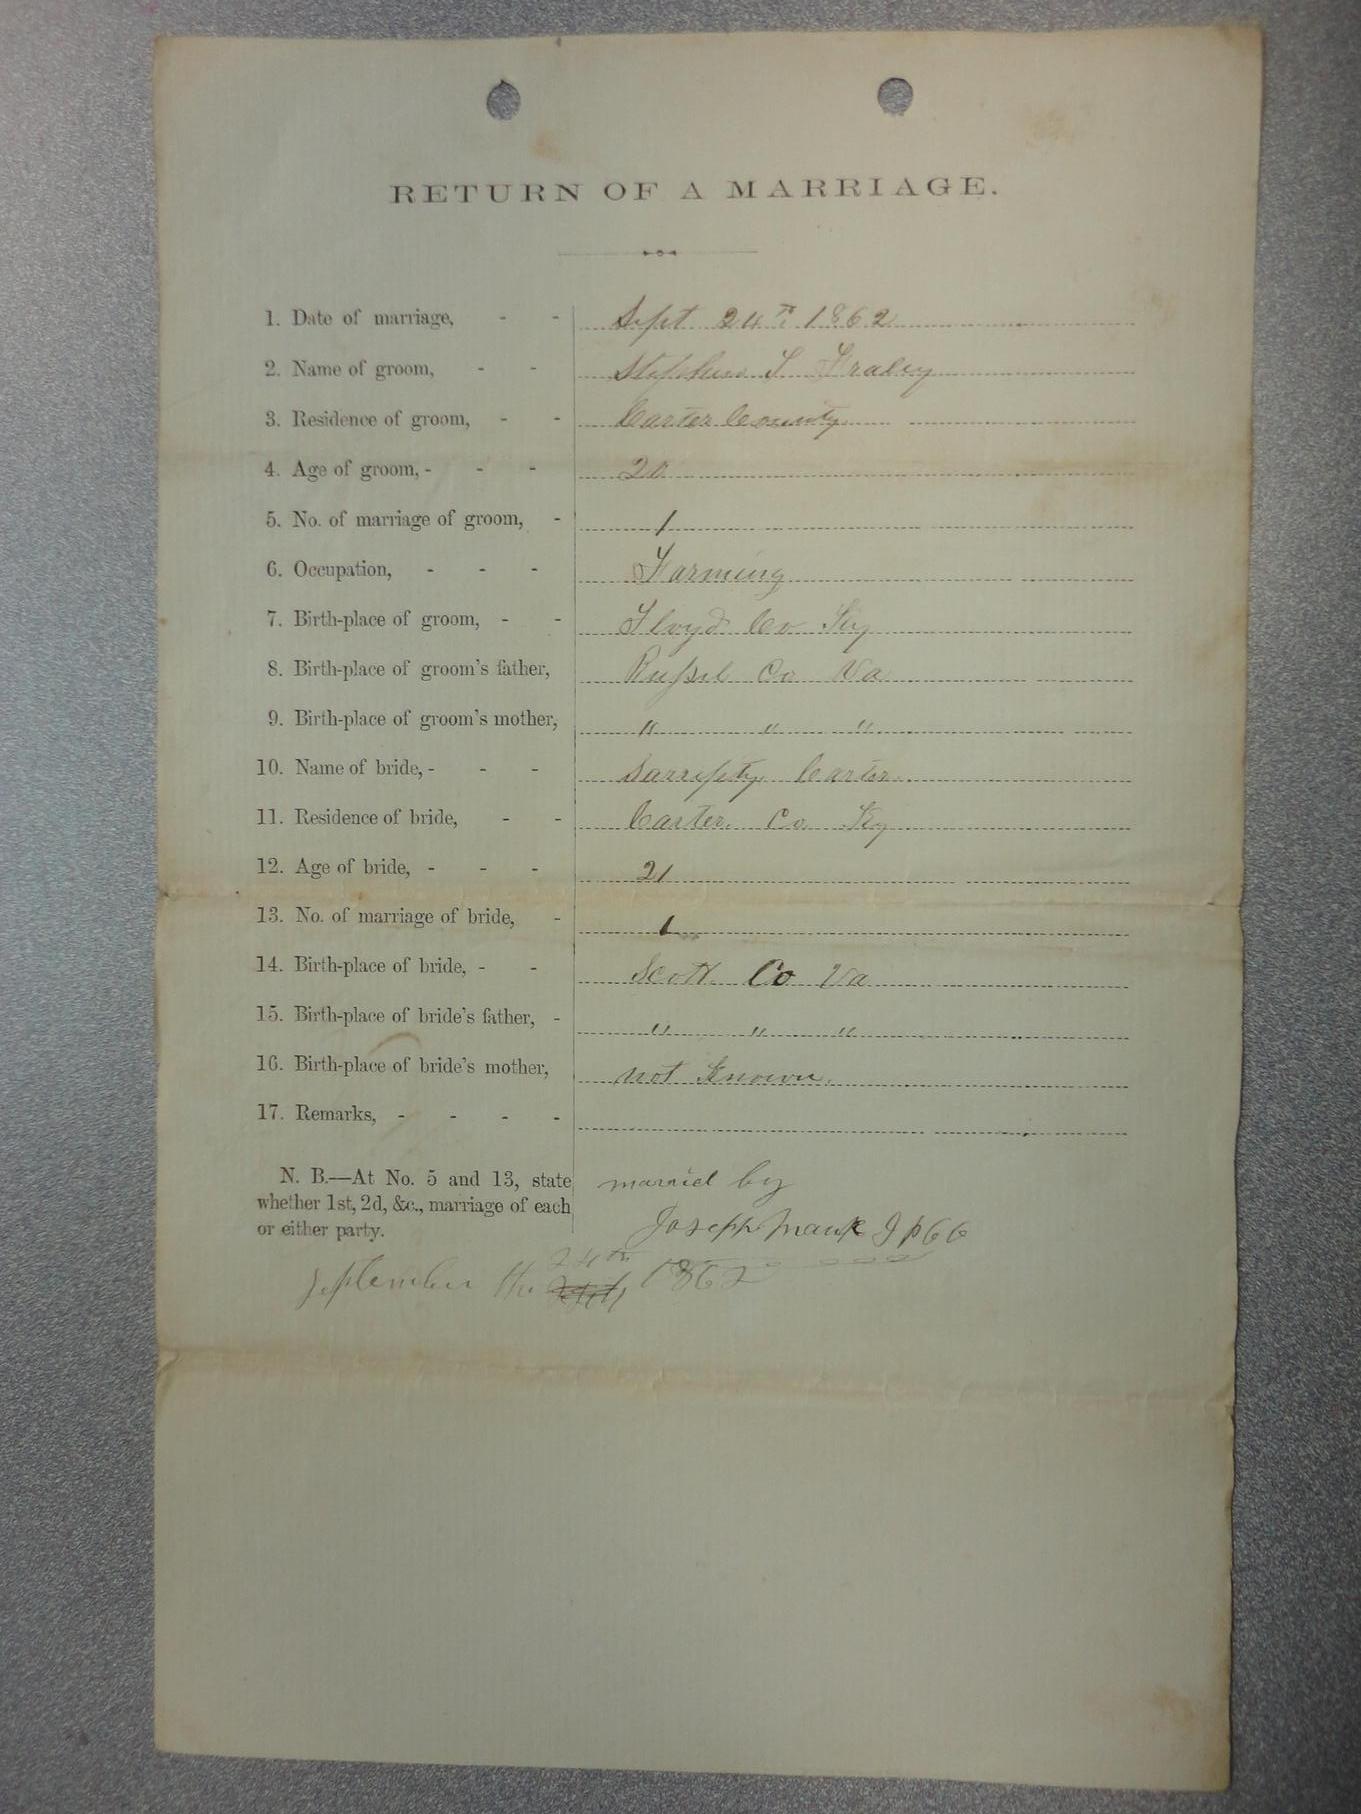 RETURN OF A MARRIAGE.
1. Date of marriage, - - Sept 24th 1862
2. Name of groom, - - Stephen S Fraley
3. Residence of groom, - - Carter County
4. Age of groom, - - - 20
5. No. of marriage of groom, - 1
6. Occupation, - - - Farming
7. Birth-place of groom, - - Floyd Co Ky
8. Birth-place of groom's father, Russel Co Va
9. Birth-place of groom's mother, " " "
10. Name of bride, - - - Carter
11. Residence of bride, - - Carter Co Ky
12. Age of bride, - - - 21
13. No. of marriage of bride, - 1
14. Birth-place of bride, - - Scott Co Va
15. Birth-place of bride's father, - " " "
16. Birth-place of bride's mother, not Known.
17. Remarks, - - - -
N. B.—At No. 5 and 13, state
whether 1st, 2d, &c., marriage of each
or either party.
married by
Joseph Mauk J P C C
September the 24th 1862